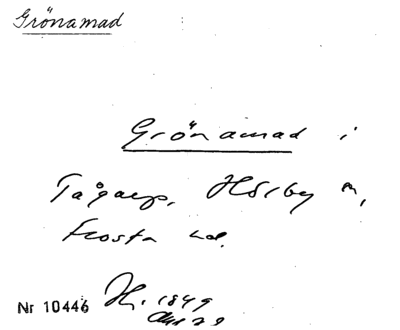 Grönamad
Grönamad i
Tågarp, Hörby sn,
Frosta hd.
Nr 10446 H. 1849